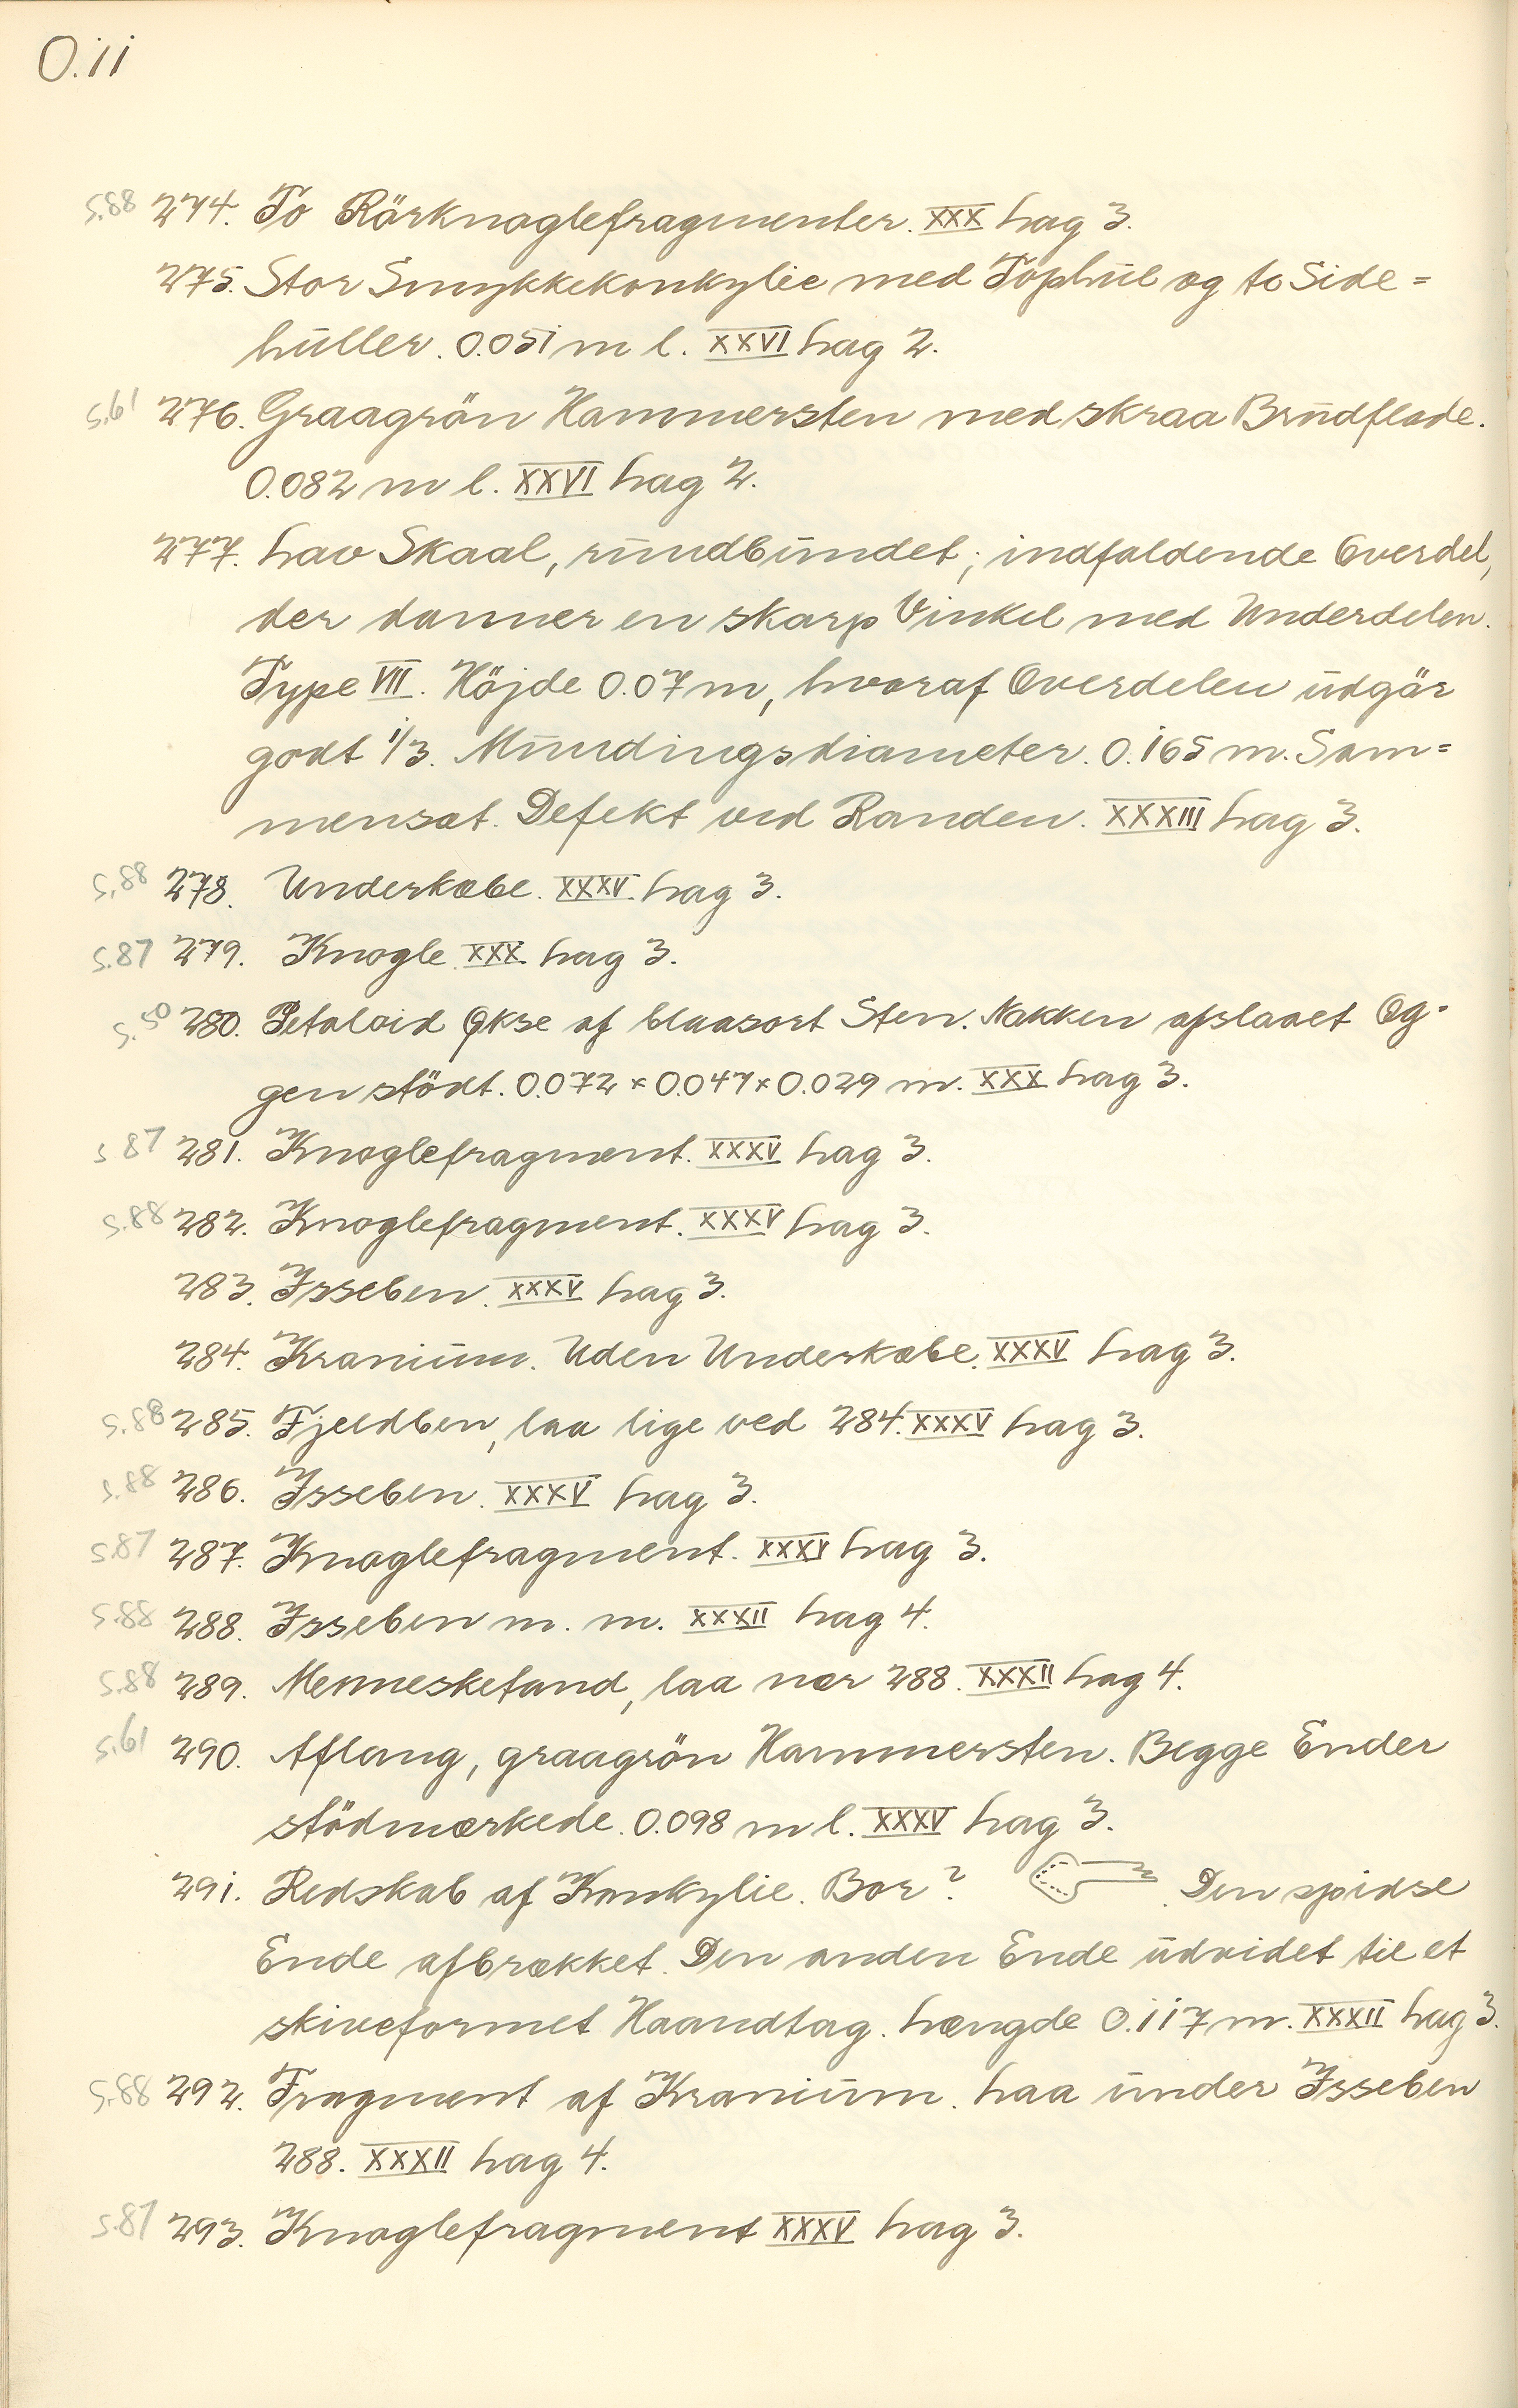 O.11
S.88 274. To Rörknoglefragmenter. XXX Lag 3.
275. Stor Smykkekonkylie med Tophul og to Side=
huller. 0.051 m l. XXVI Lag 2.
S.61 276. Graagrön Hammersten med skraa Brudflade.
0.082 m l. XXVI Lag 2.
277. Lav Skaal, rundbundet; indfaldende Overdel,
der danner en skarp Vinkel med Underdelen.
Type VII. Höjde 0.07 m, hvoraf Overdelen udgör
godt 1/3. Mundingsdiameter. 0.165 m. Sam=
mensat. Defekt ved Randen. XXXIII Lag 3.
S.88 278. Underkæbe. XXXV. Lag 3.
S.87 279. Knogle XXX. Lag 3.
S.50 280. Petaloid Økse af blaasort Sten. Nakken afslaaet Og-
gen stödt. 0.072 × 0.047 × 0.029 m. XXX Lag 3.
S 87 281. Knoglefragment. XXXV Lag 3.
S.88 282. Knoglefragment. XXXV Lag 3.
283. Isseben. XXXV Lag 3.
284. Kranium. Uden Underkæbe. XXXV Lag 3.
S.88 285. Fjeldben, laa lige ved 284. XXXV Lag 3.
S.88 286. Isseben. XXXV Lag 3.
S.87 287. Knoglefragment. XXXV Lag 3.
S.88 288. Isseben m. m. XXXII Lag 4.
S.88 289. Mennesketand, laa nær 288. XXXII Lag 4.
S.61 290. Aflang, graagrön Hammersten. Begge Ender
stödmærkede. 0.098 m l. XXXV Lag 3.
291. Redskab af Konkylie. Bor? Den spidse
Ende afbrækket. Den anden Ende udvidet til et
skiveformet Haandtag. Længde 0.117 m. XXXII Lag 3.
S.88 292. Fragment af Kranium. Laa under Isseben
288. XXXII Lag 4.
S.87 293. Knoglefragment XXXV Lag 3.